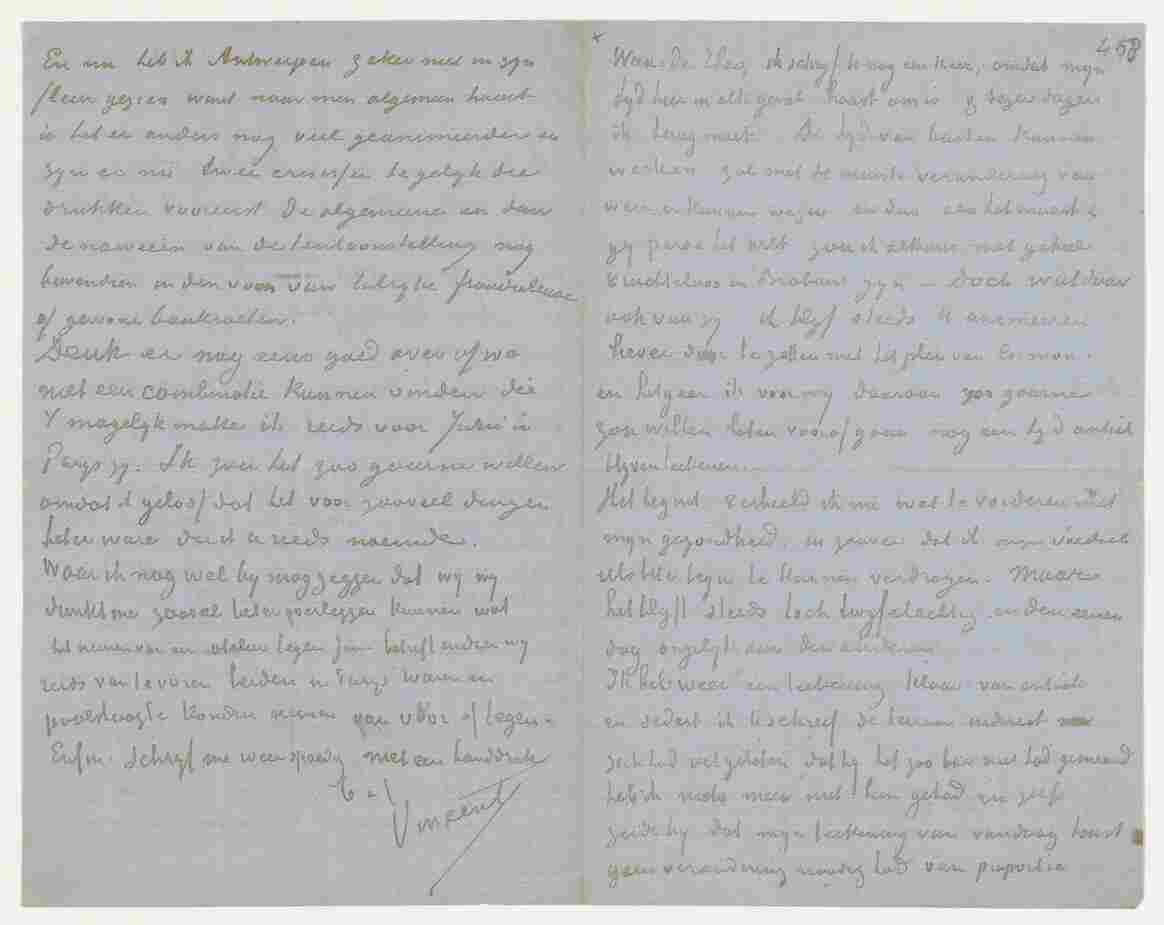 En nu heb ik Antwerpen zeker niet in zyn
fleur gezien want naar men algemeen hoort
is het er anders nog veel geanimeerder en
zyn er nu twee crisissen tegelyk die
drukken vooreerst de algemeene en dan
de naweeën van de tentoonstelling nog
bovendien in den vorm van talryke frauduleuse
of gewone bankroeten.
Denk er nog eens goed over of we
niet een combinatie kunnen vinden die
't mogelyk maakt ik reeds voor Juni in
Parys zy. Ik zou het zoo gaarne willen
omdat ik geloof dat het voor zooveel dingen
beter ware dan ik U reeds noemde.
Waar ik nog wel by mag zeggen dat wy my
dunkt me zooveel beter overleggen kunnen wat
het nemen van een atelier tegen Juni betreft indien wy
reeds van te voren beiden in Parys waren en
poolshoogte konden nemen van voor of tegen.
Enfin. Schryf me weer spoedig met een handdruk
t. à t.
Vincent
458
Waarde Theo, ik schryf U nog een keer, omdat myn
tyd hier in elk geval haast om is zy dezer dagen
ik terug moet. De tyd van buiten kunnen
werken zal met de minste verandering van
weer er kunnen wezen en dus als het moest &
gy perse het wilt zou ik althans niet geheel
vruchteloos in Brabant zyn – doch wat daar
ook van zy ik blyf steeds 't aannemen
liever door te zetten met het plan van Cormon.
en hetgeen ik voor my daaraan zoo gaarne
zou willen laten voorafgaan nog een tyd antiek
blyven teekenen.
Het begint verbeeld ik me wat te vorderen met
myn gezondheid, in zoover dat ik myn voedsel
iets beter begin te kunnen verdragen. Maar
het blyft steeds toch twyfelachtig en den eenen
dag ongelyk aan den anderen.
Ik heb weer een teekening klaar van antiek
en sedert ik U schreef de leeraar inderest
zich had vergeleken dat hy het zoo boos niet had gemeend
heb ik niets meer met hem gehad en zelf
zeide hy dat myn teekening van vandaag haast
geen verandering noodig had van proportie